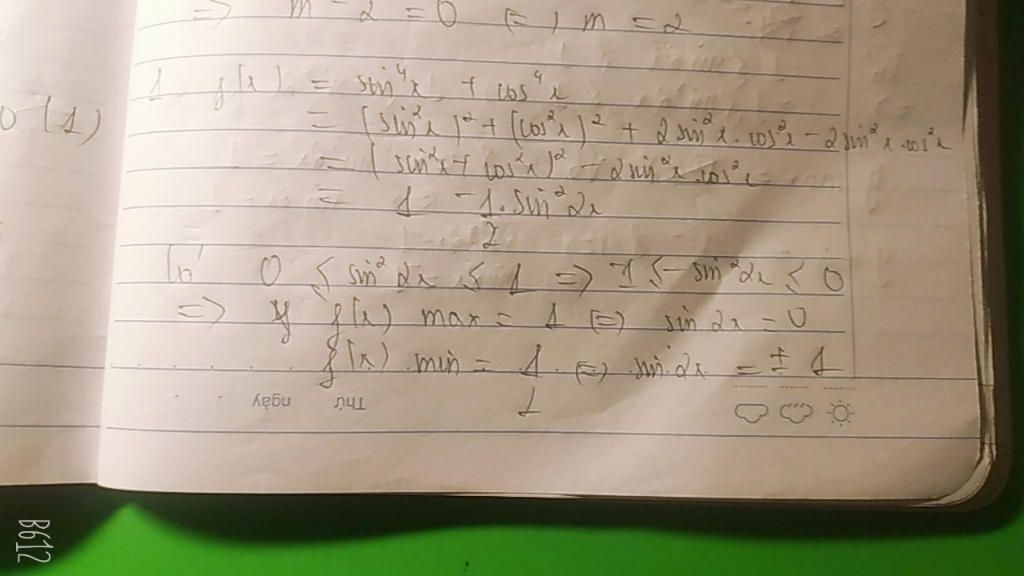 => m - 2 = 0 (=) m = 2
0 (1)
1 f(x) = sin⁴x + cos⁴x
= (sin²x)² + (cos²x)² + 2sin²x.cos²x - 2sin²x.cos²x
= (sin²x + cos²x)² - 2sin²x.cos²x
= 1 - 1.sin²2x
2
Có 0 ≤ sin²2x ≤ 1 => -1 ≤ - sin²2x ≤ 0
=> f(x) max = 1 (=) sin 2x = 0
f(x) min = 1 (=) sin 2x = ± 1
2
Thứ ngày
B612